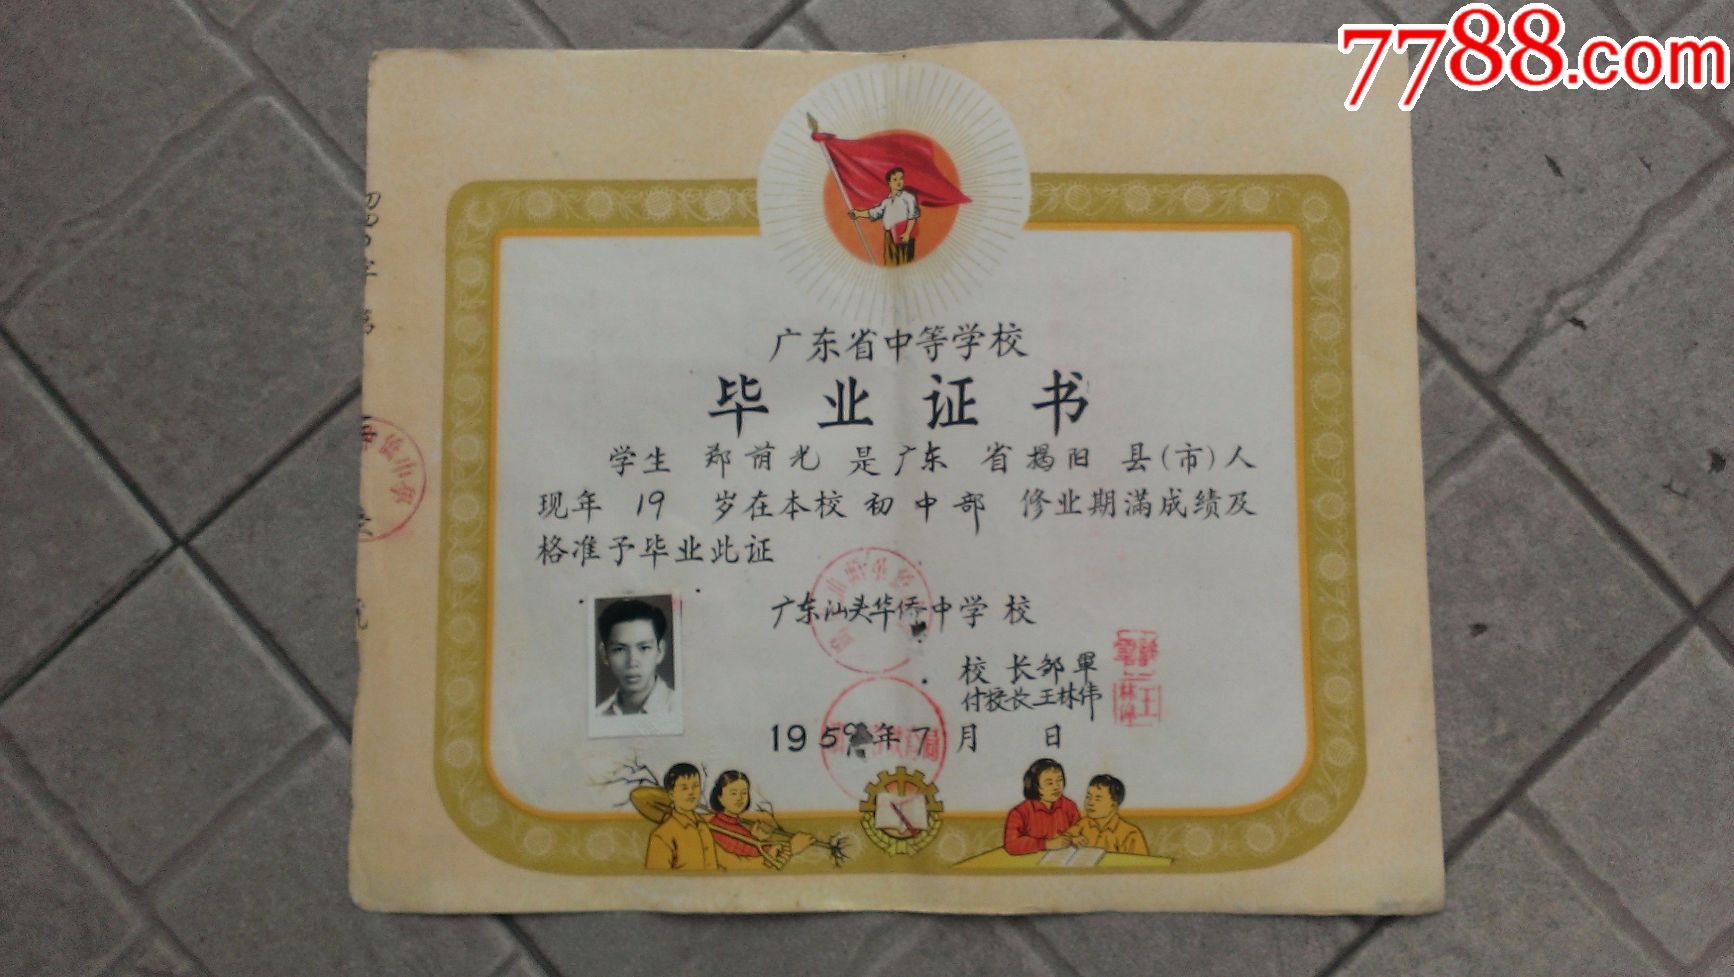 7788.com
广东省中等学校
毕业证书
学生 郑荫光 是广东 省揭阳 县(市)人
现年 19 岁在本校 初中部 修业期满成绩及
格准予毕业此证
广东汕头华侨中学校
校长邹军
付校长王林伟
1959年7月 日